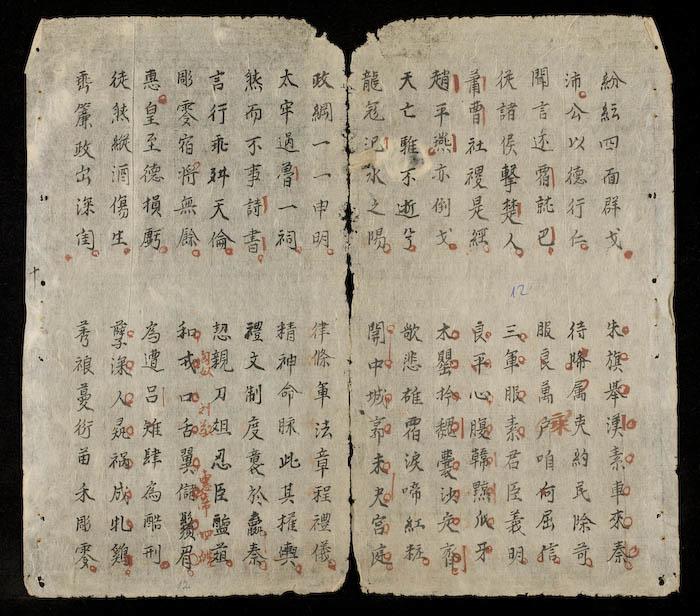 紛紜四面群戈 朱旗舉漢素車來秦
沛公以德行仁 待降属吏約民除苛
聞言还霸就巴 服良萬户咱何屈信
從諸侯擊楚人 三軍服素君臣義明
蕭曹社稷是經 良平心腹韓黥爪牙
趙平燕亦倒戈 木罌拾魏囊沙定齊
天亡騅不逝兮 歌悲碓霜淚啼紅粧
龍冠汜水之陽 開中城郭未央宮庭
政綱一一申明 律條軍法章程禮儀
太牢過魯一祠 精神命脉此其權輿
然而不事詩書 禮文制度襲於嬴秦
言行乖舛天倫 恝親刀俎忍臣醢菹
彫零宿將無餘 和戎口舌翼儲鬚眉
惠皇至德損虧 為遭呂雉肆為酷刑
徒然縱酒傷生 孽深人彘禍成牝鷄
垂簾政出深閨 莠稂蔓衍苗禾彫零
12
十
12